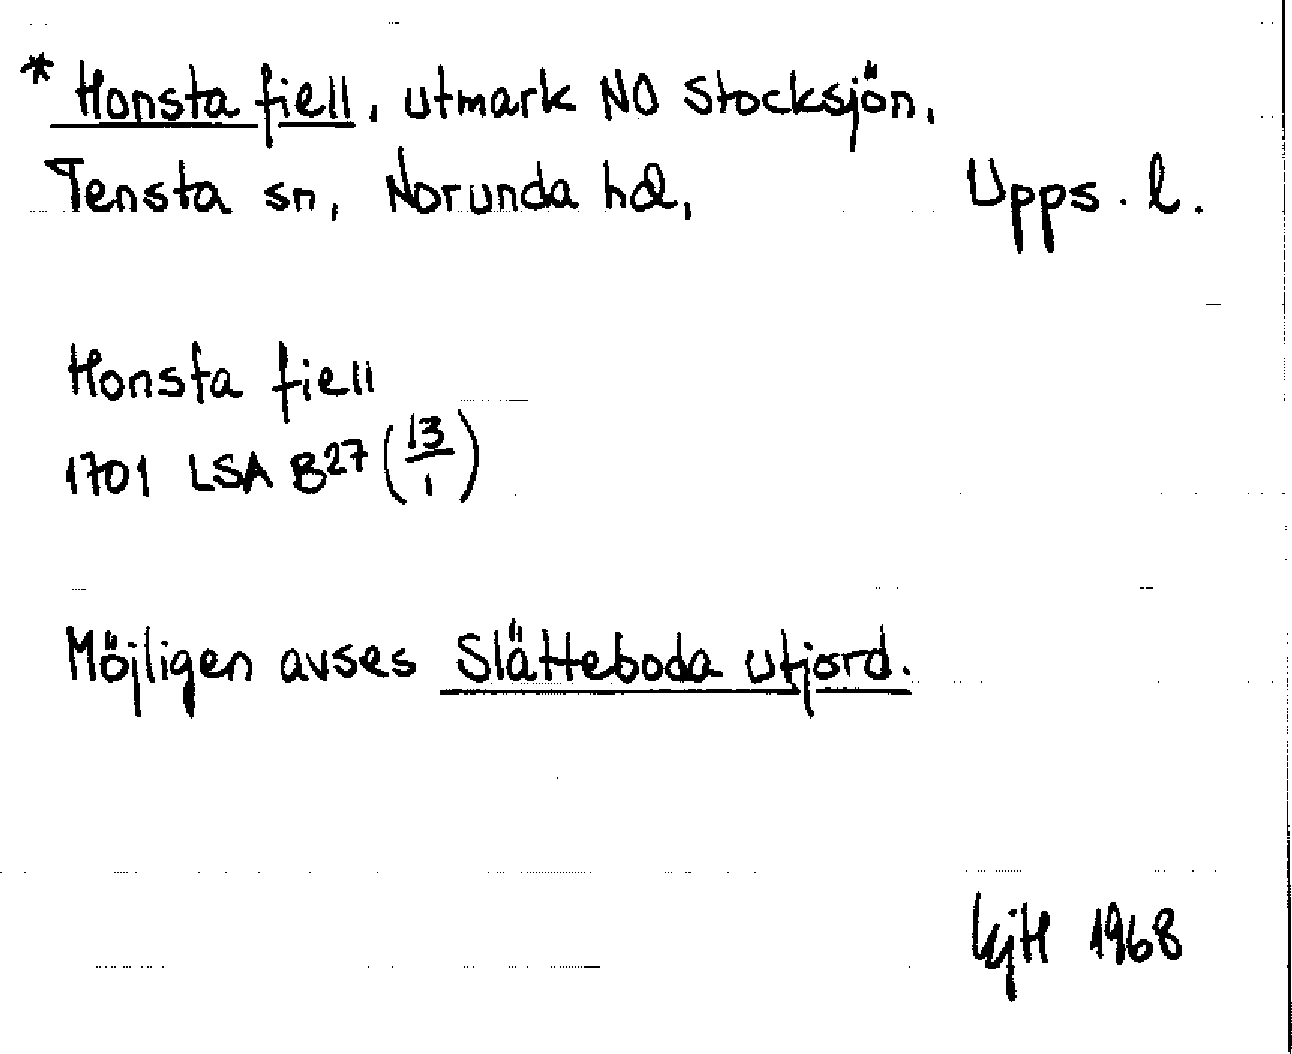 * Honsta fiell, utmark NO Stocksjön,
Tensta sn, Norunda hd, Upps. l.
Honsta fiell
1701 LSA B27 (13/1)
Möjligen avses Slätteboda utjord.
KjH 1968